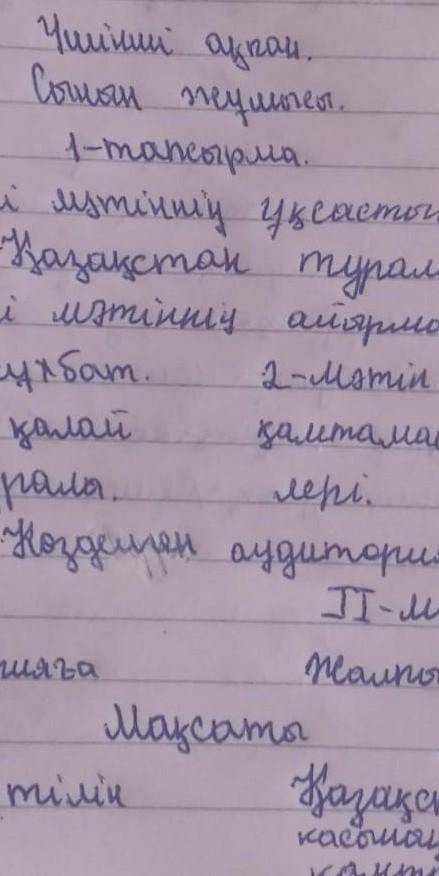 Үшінші ақпан.
Сынып жұмысы.
1-тапсырма.
і мәтіннің ұқсастығ
Қазақстан турал
і мәтіннің айырма
ұхбат. 2-мәтін
қалай қамтама
ралы. лері.
Көзделген аудитория
II-м
шяға Жалпы
Мақсаты
тілін Қазақс